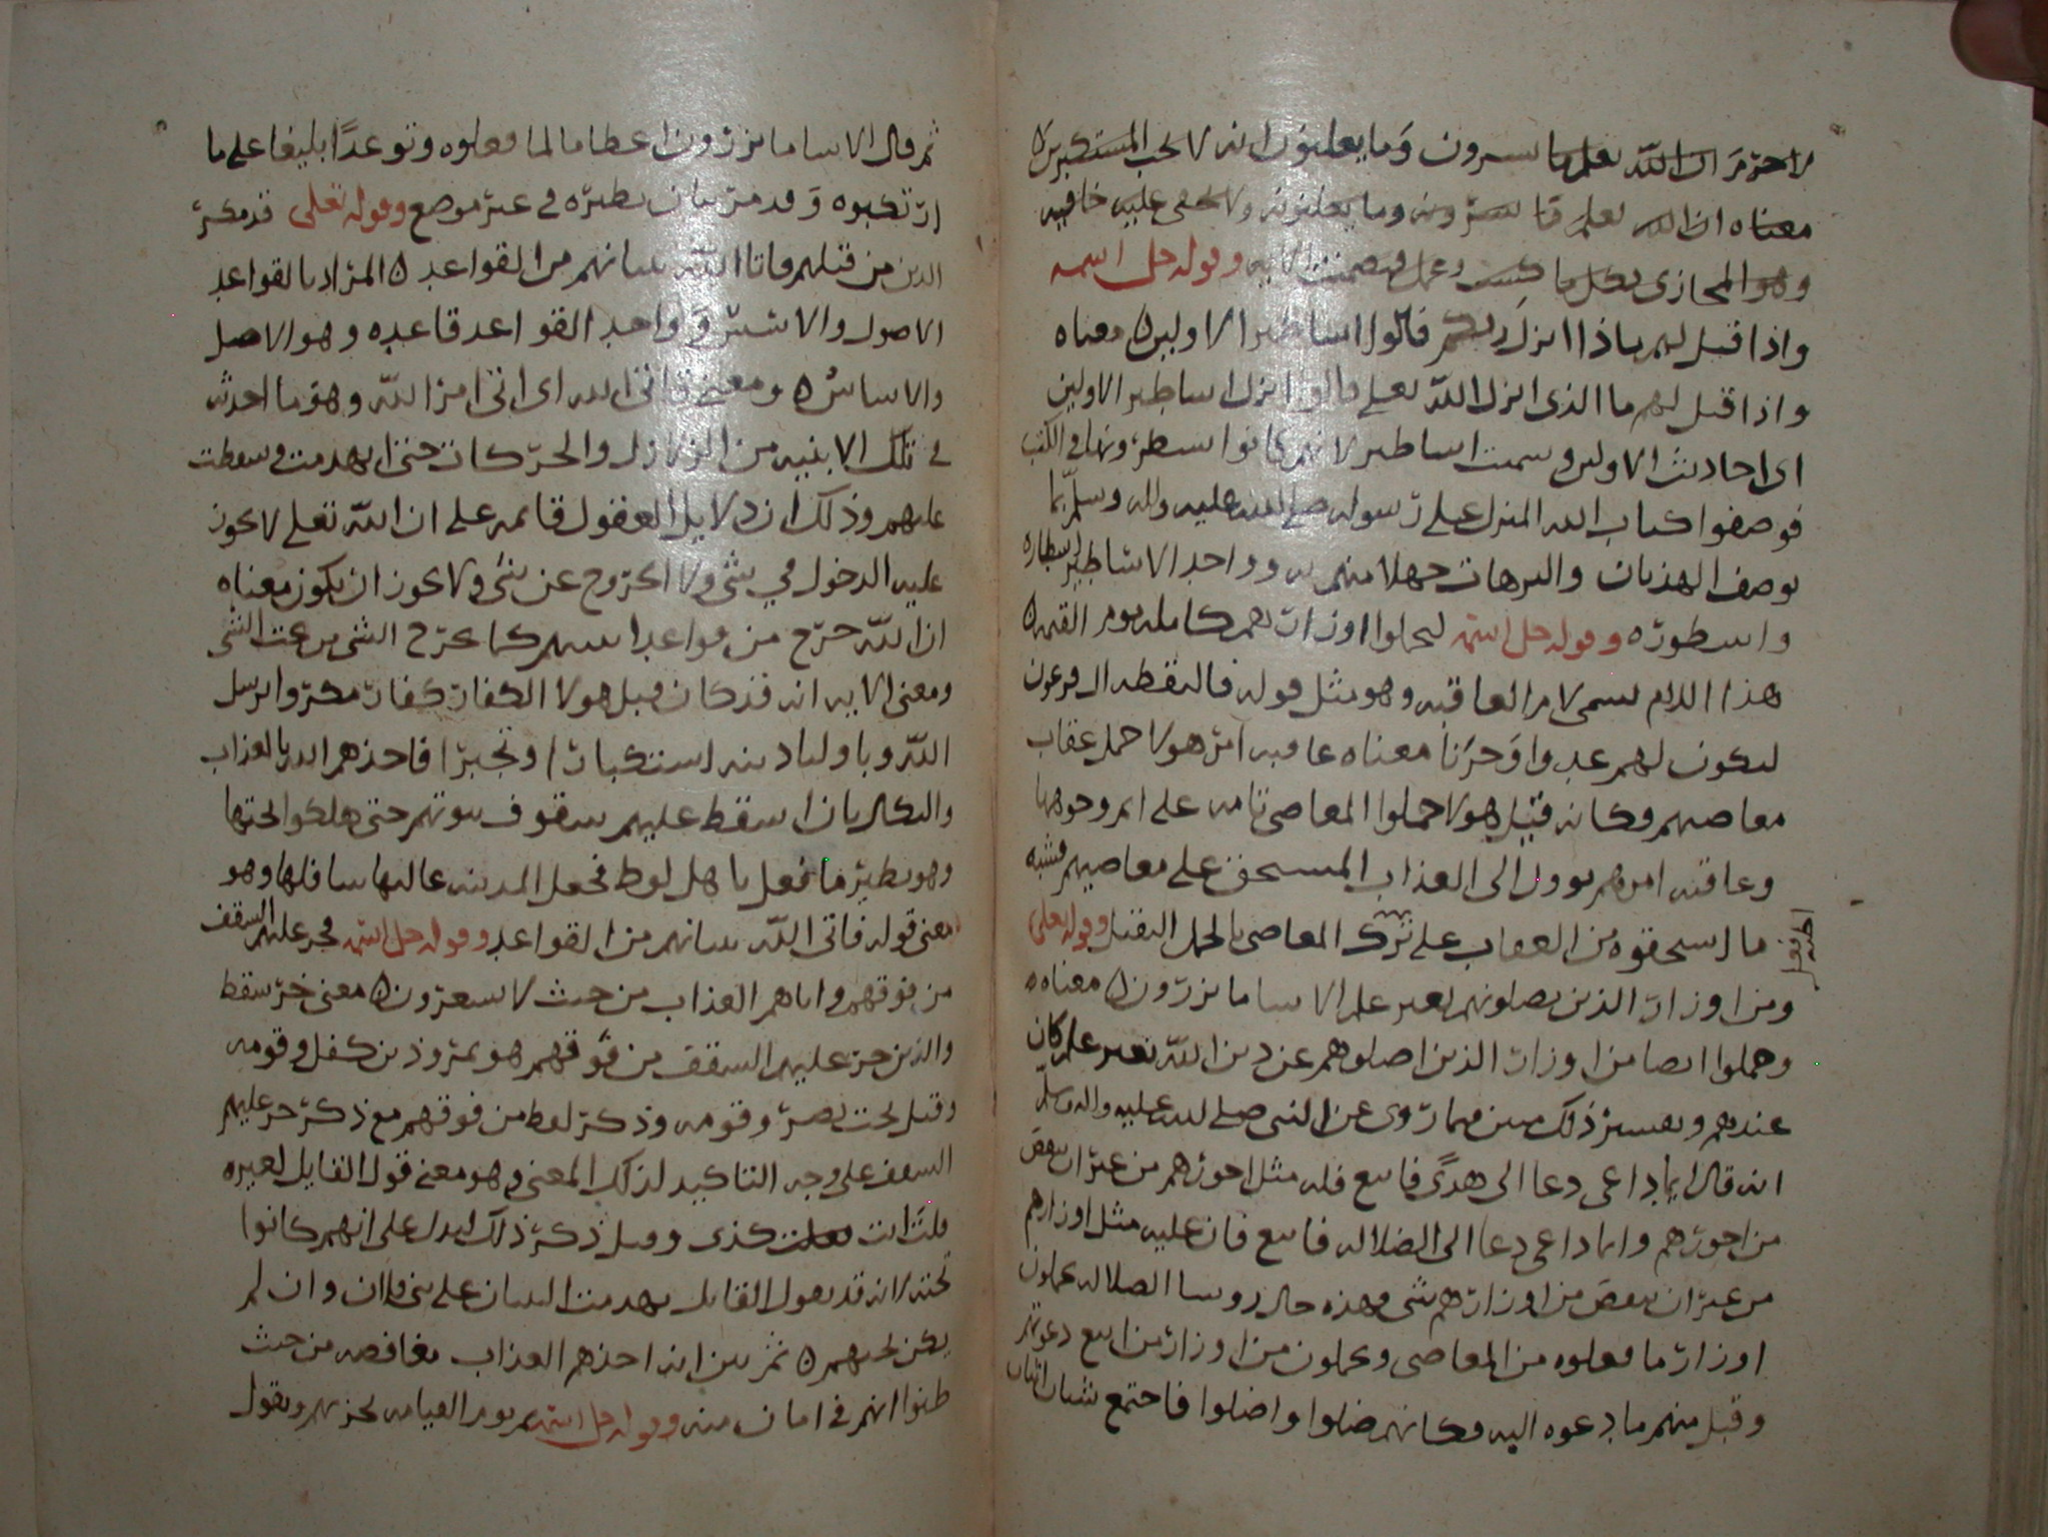 لا جرم ان الله يعلم ما يسرون وما يعلنون انه لا يحب المستكبرين ه
معناه ان الله يعلم ما يسرونه وما يعلنونه ولا تخفى عليه خافيه
وهو المجازى بكل ما كسب وعمل فتضمنت الايه وقوله جل اسمه
واذا قيل لهم ماذا انزل ربكم قالوا اساطير الاولين ه معناه
واذا قيل لهم ما الذى انزل الله تعلى قالوا انزل اساطير الاولين
اى احاديث الاولين وسميت اساطير لانهم كانوا يسطرونها فى الكتب
فوصفوا كتاب الله المنزل على رسوله صلى الله عليه واله وسلم بما
يوصف الهذيان والترهات جهلا منهم به وواحد الاساطير اسطاره
واسطوره وقوله جل اسمه ليحملوا اوزارهم كامله يوم القيمه ه
هذا اللام يسمى لام العاقبه وهو مثل قوله فالتقطه ال فرعون
ليكون لهم عدوا وحزنا معناه عاقبه امر هولا حمل عقاب
معاصيهم وكانه قيل هولا حملوا المعاصى تامه على اتم وجوهها
وعاقبه امرهم يوول الى العذاب المستحق على معاصيهم فشبه
ما استحقوه من العقاب على ترك المعاصى بالحمل الثقيل وقوله تعلى
ومن اوزار الذين يضلونهم بغير علم الا سا ما يزرون ه معناه ه
وحملوا ايضا من اوزار الذين اضلوهم عن دين الله بغير علم كان
عندهم وتفسير ذلك مبين فيما روى عن النبى صلى الله عليه واله وسلم
انه قال ايما داعى دعا الى هدًى فاتبع فله مثل اجورهم من غير ان ينقص
من اجورهم وايما داعى دعا الى الضلاله فاتبع فان عليه مثل اوزارهم
من غير ان ينقص من اوزارهم شى وهذه حال روسا الضلاله يحملون
اوزار ما فعلوه من المعاصى ويحملون من اوزار من اتبع دعوتهم
وقبل منهم ما دعوه اليه فكانهم ضلوا واضلوا فاجتمع شيان اثنان
ثم قال الا سا ما يزرون اعظاما لما فعلوه وتوعدًا بليغا على ما
ارتكبوه وقد مر بيان نظيره فى غير موضع وقوله تعلى قد مكر
الذين من قبلهم فاتا الله بنيانهم من القواعد ه المراد بالقواعد
الاصول والاس وواحد القواعد قاعده وهو الاصل
والاساس ه ومعنى فاتى الله اى اتى امر الله وهو ما احدث
فى تلك الابنيه من الزلازل والحركات حتى انهدمت وسقطت
عليهم وذلك ان دلايل العقول قايمه على ان الله تعلى لا يجوز
عليه الدخول في شى ولا الخروج عن شى ولا يجوز ان يكون معناه
ان الله خرج من قواعد بنيانهم كما يخرج الشى من تحت الشى
ومعنى الايه انه قد كان قبل هولا الكفار كفار مكروا برسل
الله وباوليا دينه استكبارا وتجبرا فاخذهم الله بالعذاب
والنكال بان اسقط عليهم سقوف بيوتهم حتى هلكوا تحتها
وهو نظير ما فعل باهل لوط فجعل المدينه عاليها سافلها وهو
معنى قوله فاتى الله بنيانهم من القواعد وقوله جل اسمه فخر عليهم السقف
من فوقهم واتاهم العذاب من حيث لا يشعرون ه معنى خر سقط
والذين خر عليهم السقف من فوقهم هو نمروذ بن كنعل وقومه
وقيل بخت نصر وقومه وذكر لفظ من فوقهم مع ذكر خر عليهم
السقف على وجه التاكيد لذلك المعنى وهو معنى قول القايل لغيره
قلت انت فعلت كذى وقيل ذكر ذلك ليدل على انهم كانوا
تحته لانه قد يقول القايل تهدمت البنيان على بنى فلان وان لم
يكن تحتهم ه ثم بين انه اخذهم العذاب مغافصه من حيث
ظنوا انهم فى امان منه وقوله جل اسمه ثم يوم القيامه يخزيهم ويقول